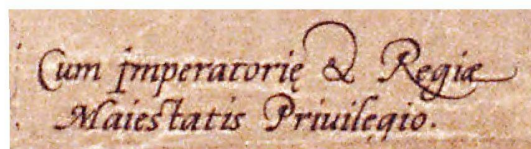 Cum Imperatorię & Regiæ
Maiestatis Priuilegio.